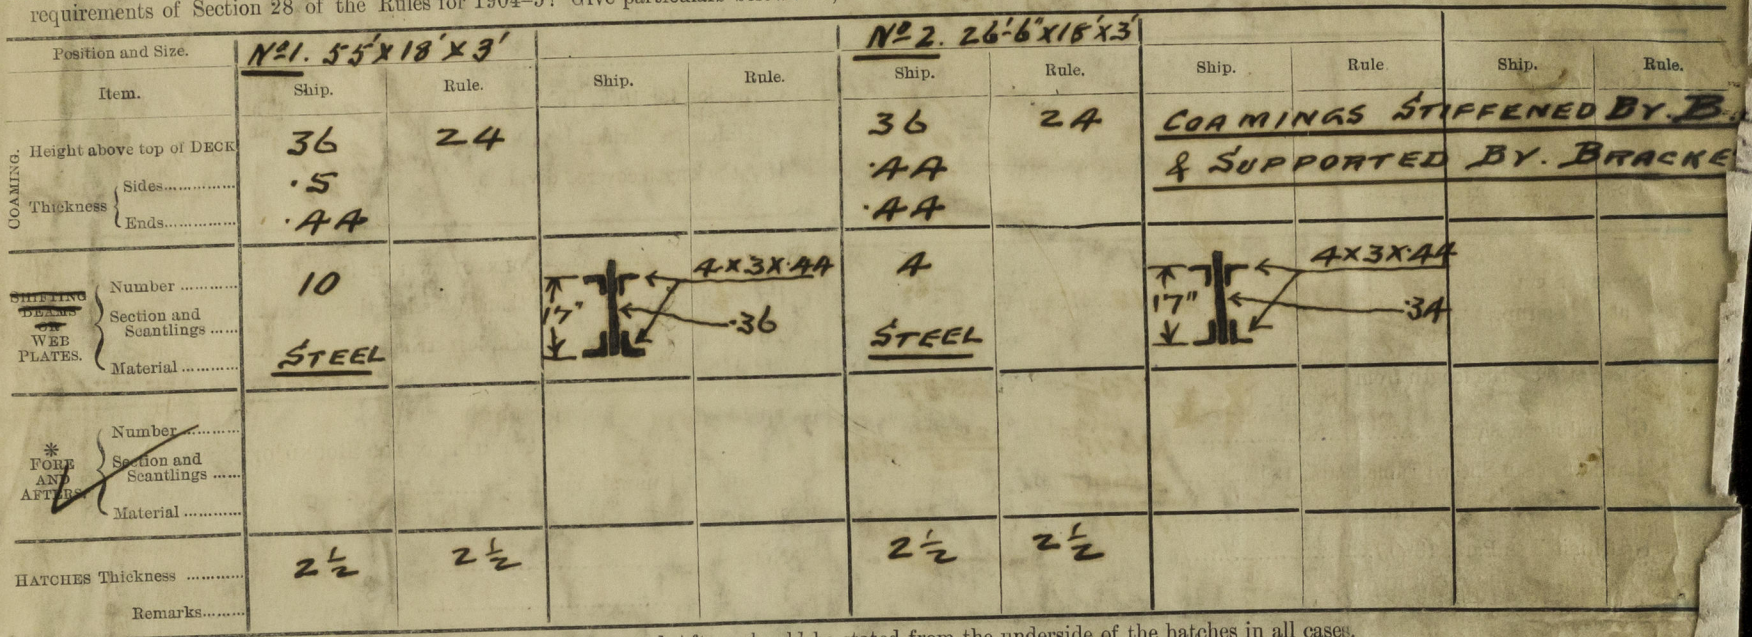 requirements of Section 28 of the Rules for 1904–5? Give particulars
Position and Size. No 1. 55'×18'×3' No 2. 26'-6"×18'×3'
Item. Ship. Rule. Ship. Rule. Ship. Rule. Ship. Rule Ship. Rule.
COAMING.
Height above top of DECK 36 24 36 24 COAMINGS STIFFENED BY. B.
Thickness { Sides............. .5 .44 & SUPPORTED BY. BRACKE
Ends............. .44 .44
SHIFTING BEAMS OR WEB PLATES.
Number ........... 10 4×3×.44 4 4×3×.44
Section and Scantlings ...... 17" .36 17" .34
Material ........... STEEL STEEL
* FORE AND AFTERS.
Number...........
Section and Scantlings ......
Material ...........
HATCHES Thickness ........... 2½ 2½ 2½ 2½
Remarks........
should be stated from the underside of the hatches in all cases.